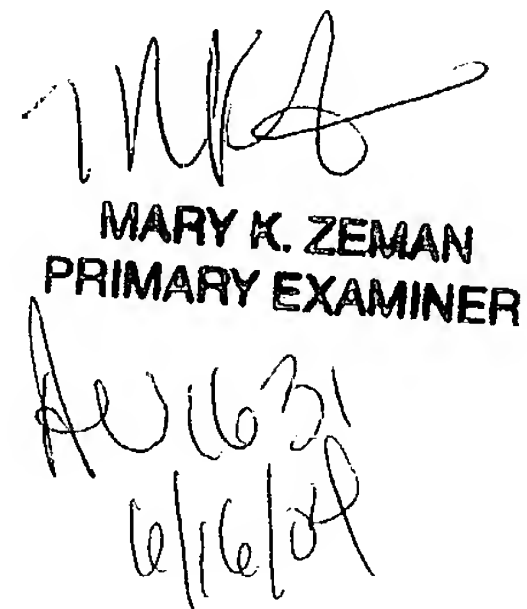 MARY K. ZEMAN
PRIMARY EXAMINER
AU 1631
6/16/04